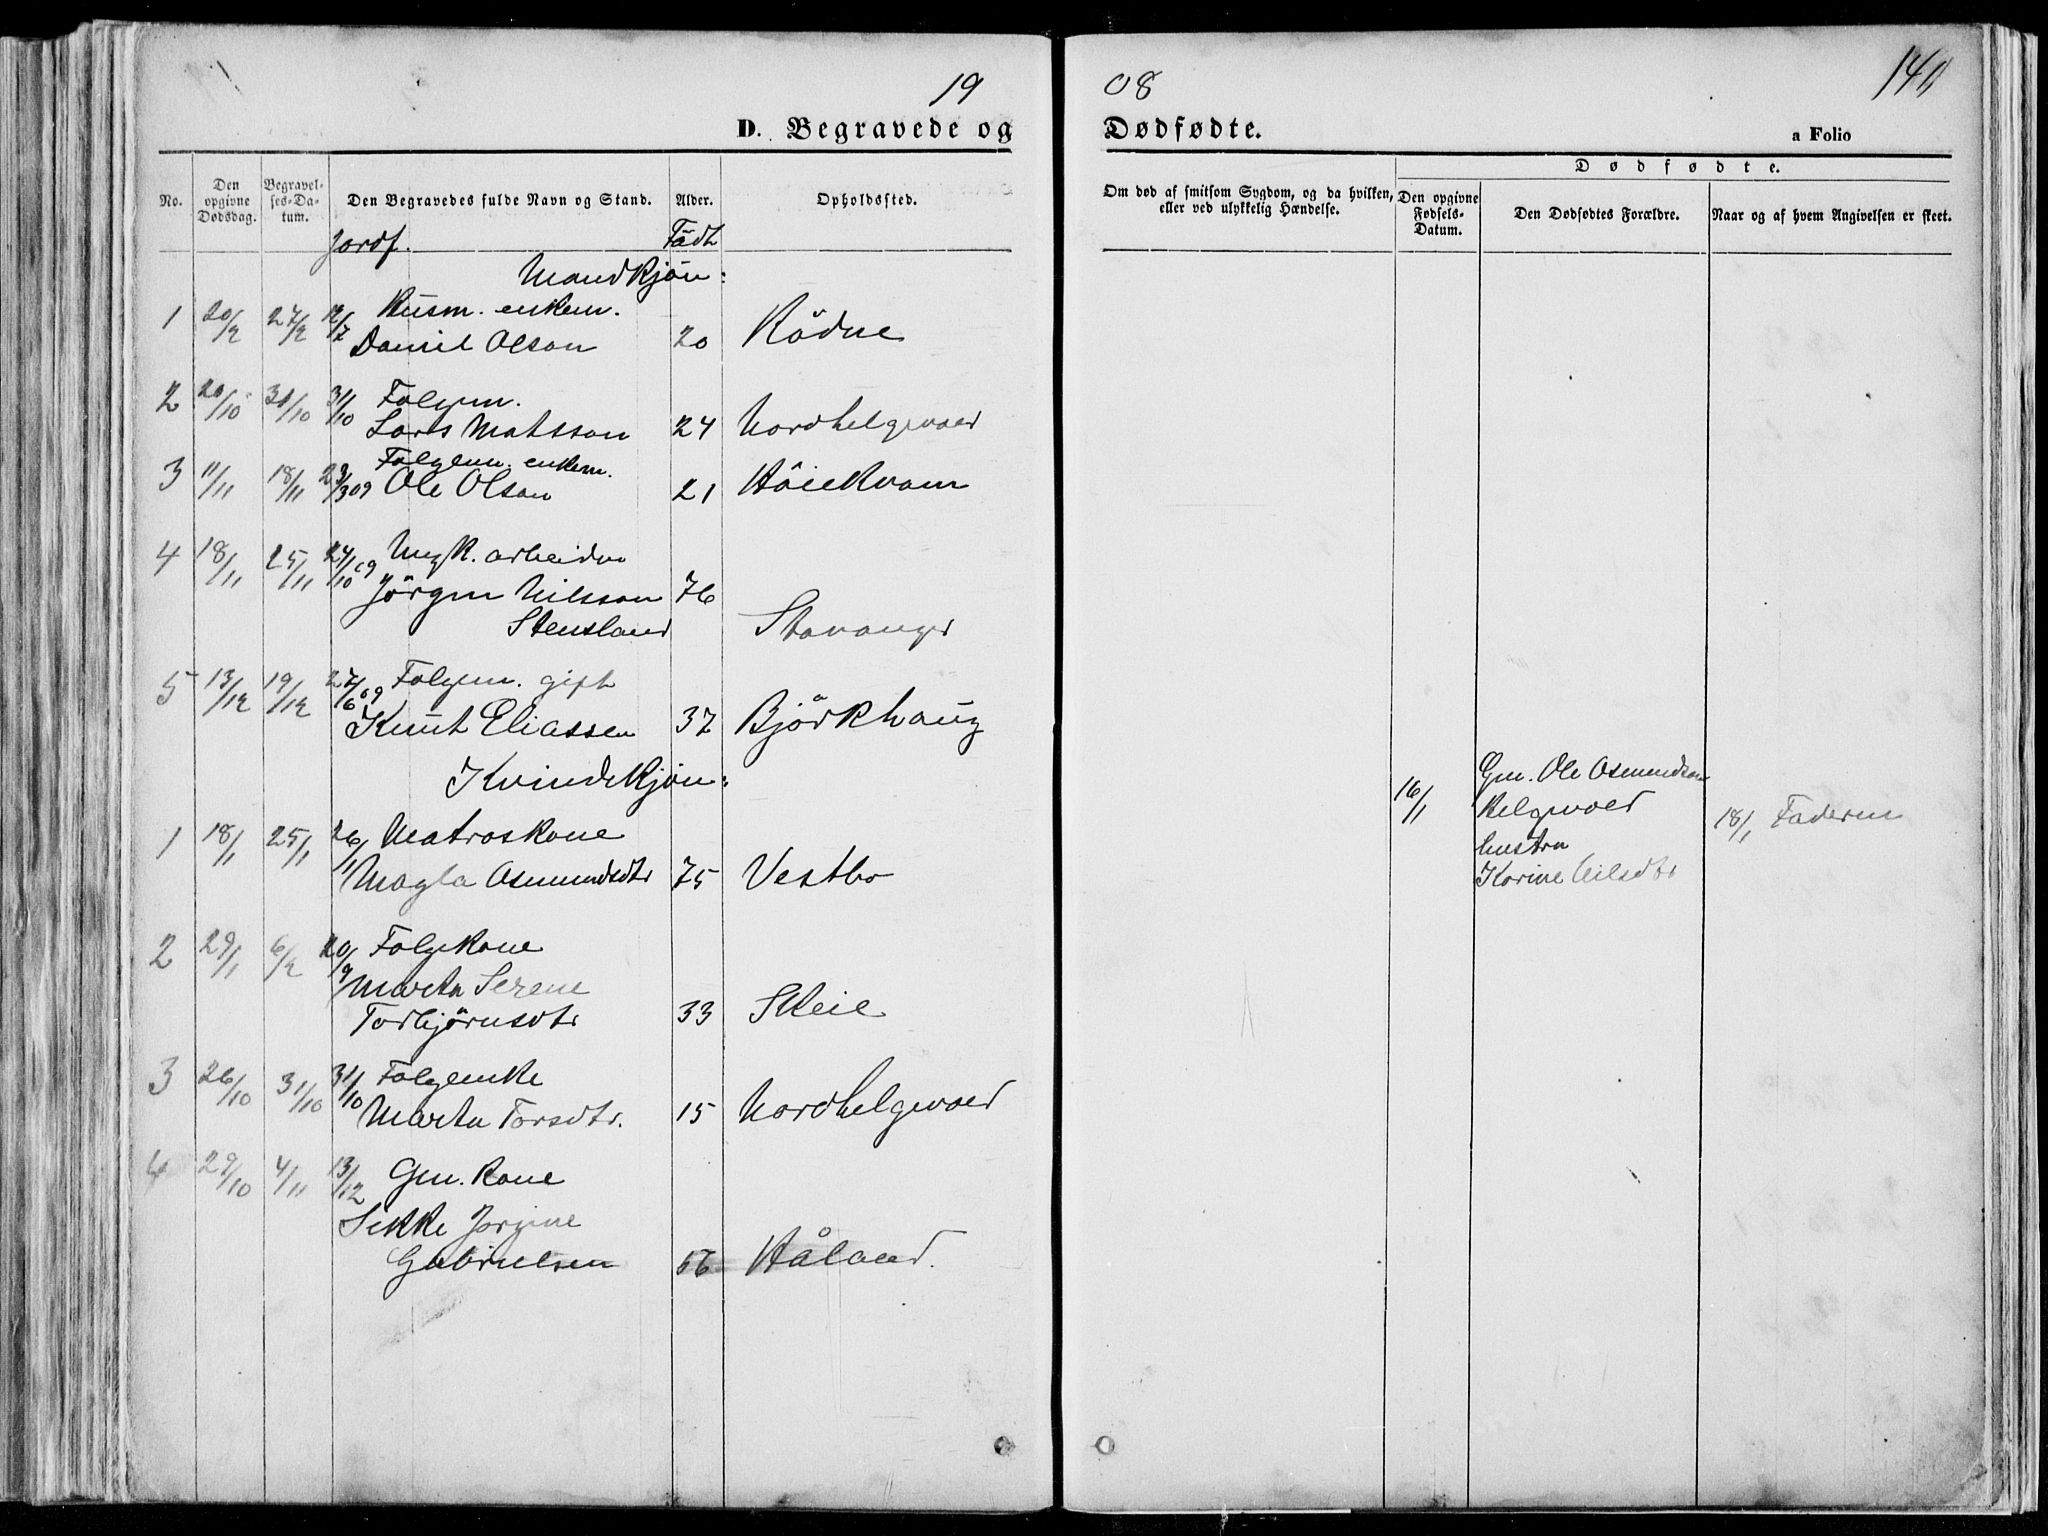 19
08
140
D. Begravede og
Dødfødte.
a Folio
No.
Den opgivne Dødsdag.
Begravelses-Datum.
Den Begravedes fulde Navn og Stand.
Alder.
Opholdssted.
Om død af smitsom Sygdom, og da hvilken, eller ved ulykkelig Hændelse.
Dødfødte.
Den opgivne Fødsels-Datum.
Den Dødfødtes Forældre.
Naar og af hvem Angivelsen er skeet.
Jordf.
Födt
Mandkjön:
1 20/2 27/2 12/7 Husm. enkem.
Daniel Olson 20 Rödne
2 20/10 31/10 31/10 Folgem.
Lars Matsson 24 Nordhelgevold
3 11/11 18/11 23/3 09 Folgem. enkem.
Ole Olson 21 Höiekvam
4 18/11 25/11 24/10 09 Ungk. arbeider
Jörgen Nilsson 76
Stensland Stavanger
5 13/12 19/12 27/6 09 Folgem. gift
Knut Eliassen 37 Björkhaug
Kvindekjön:
1 18/1 25/1 26/1 Matroskone
Magla Osmundsdtr 75 Vestbo
2 29/1 6/2 20/9 Folgekone
Marta Serene
Torbjörnsdtr 33 Skeie
3 26/10 31/10 31/10 Folgenke
Marta Torsdtr. 15 Nordhelgevold
4 29/10 4/11 13/12 Gm. kone
Sikke Jorgine
Gabrielsen 56 Håland.
16/1 Gm. Ole Osmundsen
Helgevold
hustru
Karine Nilsdtr
18/1 Faderen